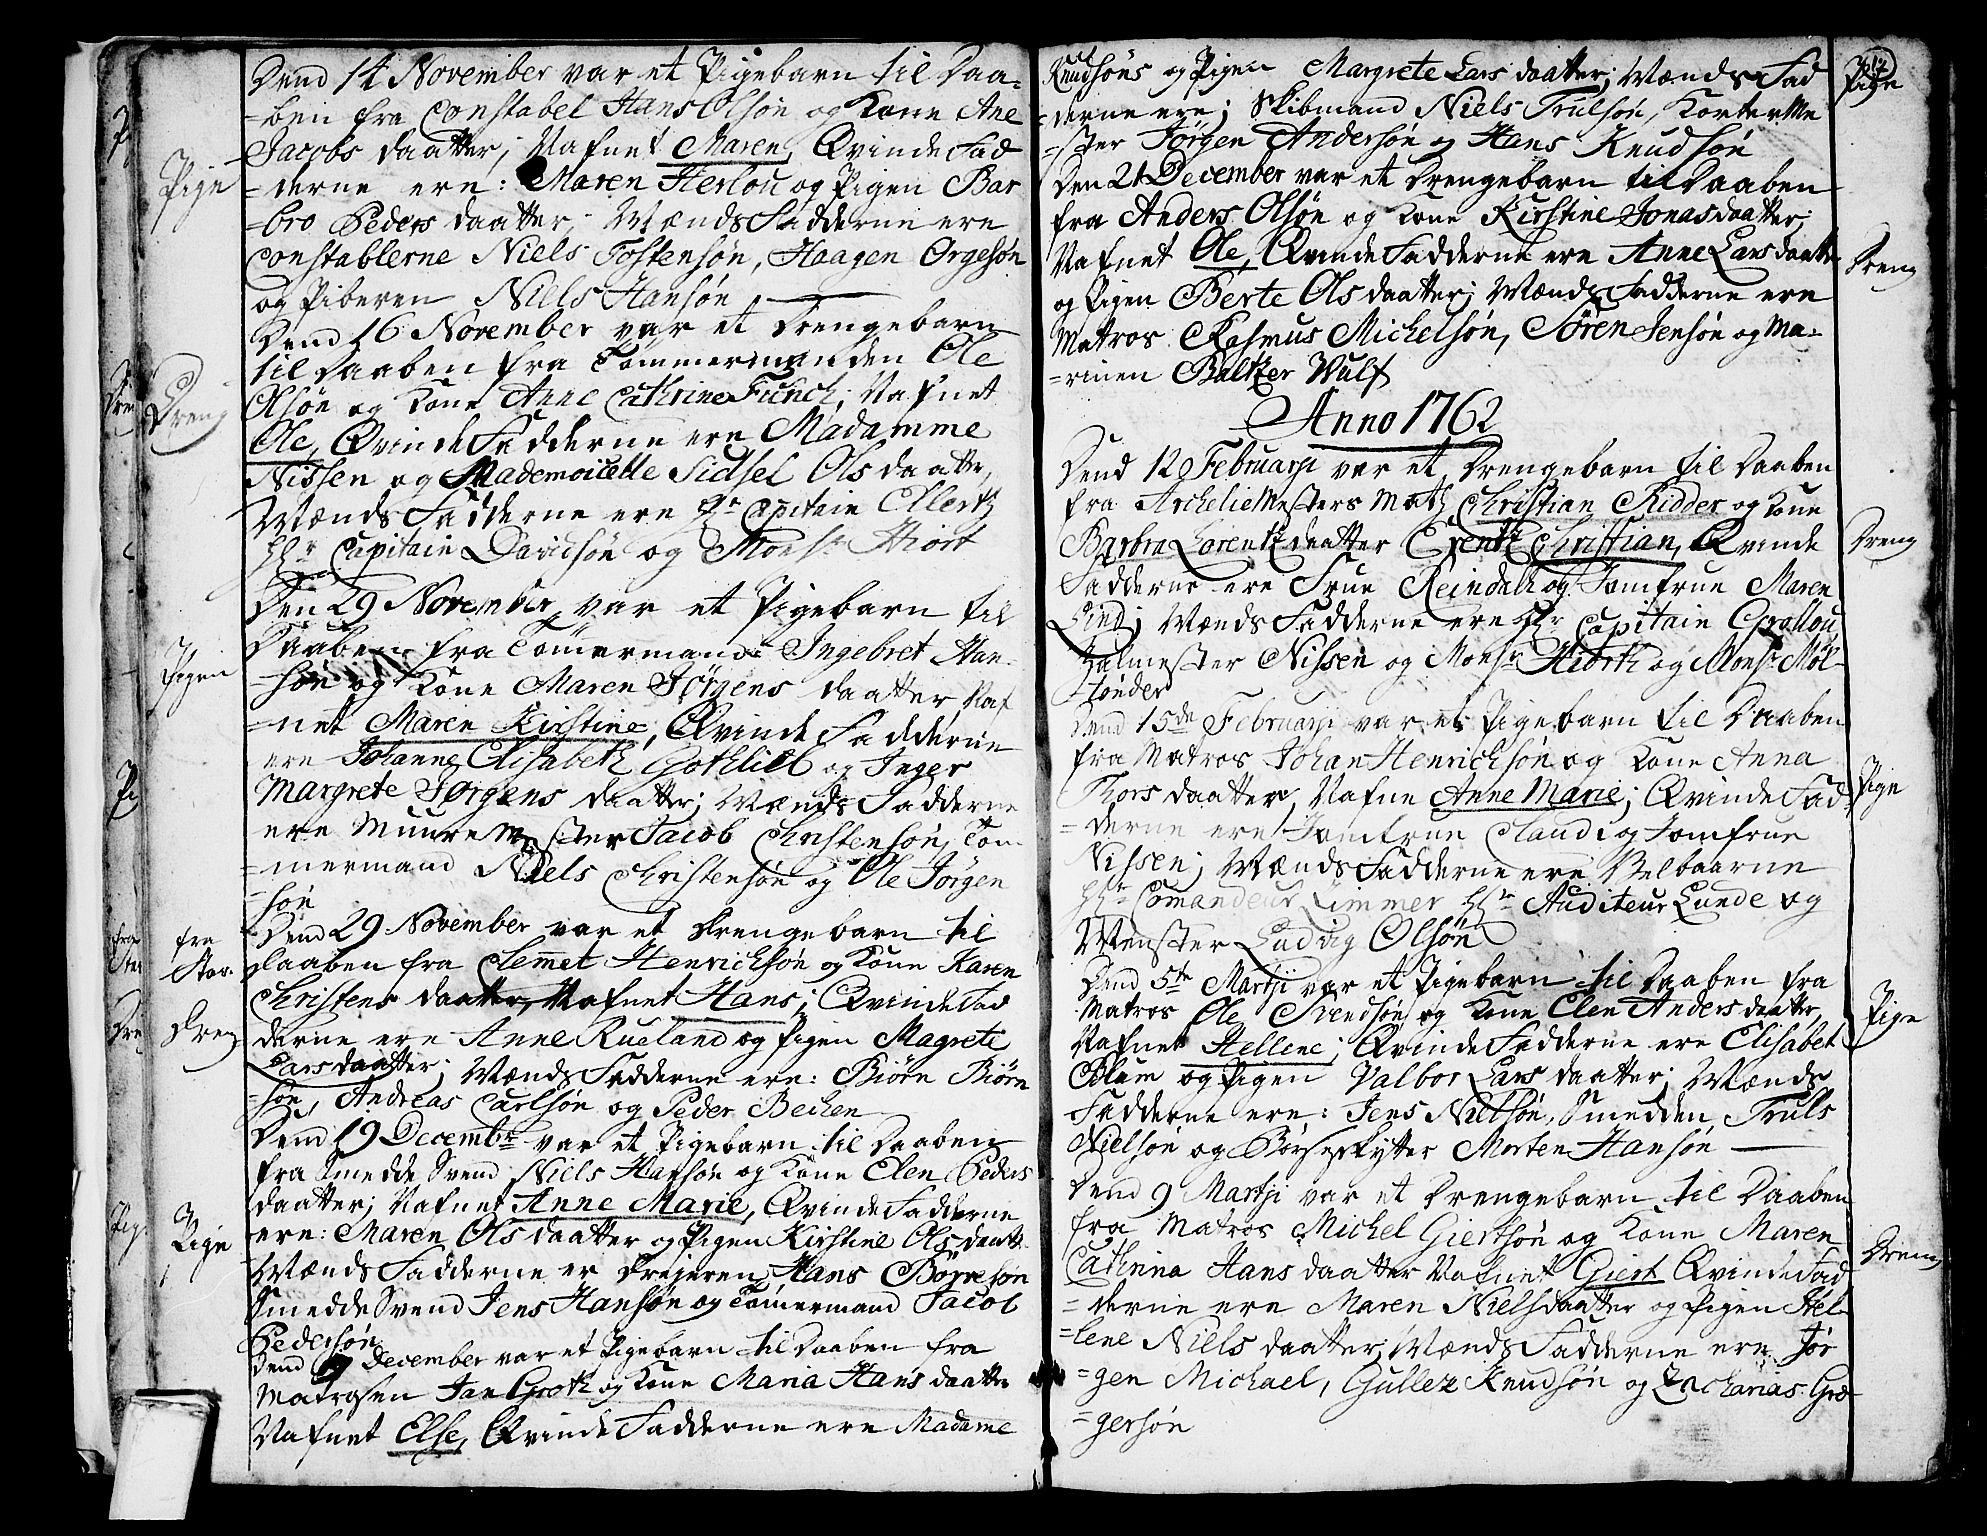 Dend 14 November var et Pigebarn til Daa-
-ben fra Constabel Hans Olsøn og Kone Ane
Jacobs daatter; Nafnet Maren, Qvinde Fad
-derne ere: Maren Herlou og Pigen Bar
-bro Peders daatter, Mænds Fadderne ere
Constablerne Niels Tostensøn, Haagen Ørgesøn
og Piberen Niels Hansøn
Pige
Dend 16 November var et Drengebarn
til Daaben fra Tømmermanden Ole
Olsøn og Kone Anne Cathrine Funch; Nafnet
Ole, Qvinde Fadderne ere Madamme
Nissen og Mademoicelle Sidsel Olsdaatter,
Mænds Fadderne ere Hr Capitain Ellertz
Hr Capitain Davidsøn og Monsr Hiort
Dreng
Den 29 November var et Pigebarn til
Daaben fra Tømermand Ingebret Han-
-søn og Kone Maren Jørgens daatter, Naf
-net Maren Kirstine, Qvinde Fadderne
ere Johanne Elisabeth Gothlieb og Inger
Margrete Jørgens daatter; Mænds Fadderne
ere Muuremester Jacob Christensøn, Tøm-
-mermand Niels Christensøn og Ole Jørgen
-søn
Pigen
Dend 29 November var et Drengebarn til
Daaben fra Clemmet Henrichsøn og Kone Karen
Christens daatter, Nafnet Hans; Qvinde Fad
derne ere Anne Rueland og Pigen Magrete
Larsdaatter; Mænds Fadderne ere: Biørn Biørn
-søn, Andreas Carlsøn og Peder Bechen
fra
Stor.
Dreng
Dend 19 Decembr var et Pigebarn til Daaben
fra Smedde Svend Niels Hansøn og Kone Elen Peders
daatter; Nafnet Anne Marie, Qvinde Fadderne
ere: Maren Olsdaatter og Pigen Kirstine Olsdaatt.
Mænds Fadderne er Drejeren Hans Børresøn
Smedde Svend Jens Hansøn og Tømermand Jacob
Pedersøn
Pige
Dend December var et Pigebarn til Daaben fra
Matrosen Jan Groth og Kone Maria Hans daatter
Nafnet Else, Qvinde Fadderne ere Madame
Knudsøns og Pigen Margrete Lars daatter; Mænds Fad
-derne ere; Skibmand Niels Trulsøn, Korterme
-ster Jørgen Andersøn og Hans Knudsøn
Pige
Den 21 December var et Drengebarn til Daaben
fra Anders Olsøn og Kone Kirstine Jonasdaatter;
Nafnet Ole, Qvinde Fadderne ere Anne Larsdaatter
og Pigen Berte Olsdaatter; Mænds Fadderne ere
Matros Rasmus Michelsøn, Søren Jensøn og Ma-
-rinen Baltzer Wulf
Dreng
Anno 1762
Dend 12 Februarji var et Drengebarn til Daaben
fra Archeliemesters Math Christian Ridder og Kone
Barbra Lorentz daatter Christian, Qvinde
Fadderne ere Frue Reindah og Jomfrue Maren
Lind; Mænds Fadderne ere Hr Capitain Grallou,
Nissen og Monsr Hiorth og Monsr Møl-
-tønder
Dreng
Dend 15de Februarji var et Pigebarn til Daaben
fra Matros Johan Henrichsøn og Kone Anna
Thors daatter, Nafne Anne Marie; Qvinde Fad-
-derne ere Jomfrue Claudi og Jomfrue
Nissen; Mænds Fadderne ere Velbaarne
Hr Comandeur Zimmer Hr Auditeur Lunde og
Mønster Ludvig Olsøn
Pige
Dend 5te Martji var et Pigebarn til Daaben fra
Matros Ole Svendsøn og Kone Elen Anders daatter,
Nafnet Hellene; Qvinde Fadderne ere Elisabet
Blom og Pigen Valbor Lars daatter; Mænds
Fadderne ere: Jens Nielsøn, Smedden Truls
Nielsøn og Børseskytter Morten Hansøn
Pige
Dend 9 Martji var et Drengebarn til Daaben
fra Matros Michel Giertsøn og Kone Maren
Cathrina Hans daatter Nafnet Giert Qvinde Fad
-derne ere Maren Nielsdaatter og Pigen Hel-
-lene Niels daatter; Mænds Fadderne ere Jør
-gen Michael, Guller Knudsøn og Zacharias Gre-
-gersøn
Dreng